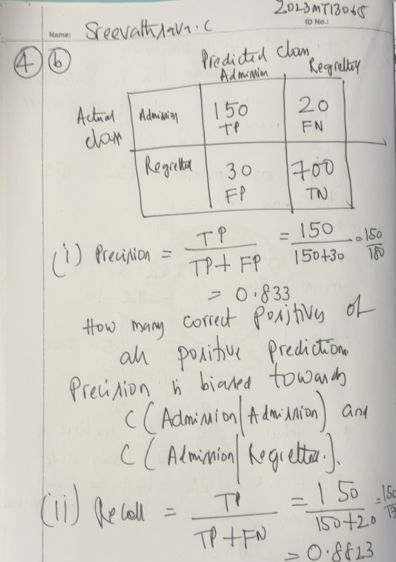 2023MT13065
ID No.:
Name: Sreevathsava.C
4 b
Predicted class
Admission Regretted
Actual class
Admission 150 TP 20 FN
Regretted 30 FP 700 TN
(i) Precision = TP / TP + FP = 150 / 150+30 = 150 / 180
= 0.833
How many correct positives of
all positive prediction
Precision is biased towards
C (Admission | Admission) and
C (Admission | Regretted).
(ii) Recall = TP / TP + FN = 150 / 150+20
= 0.8823